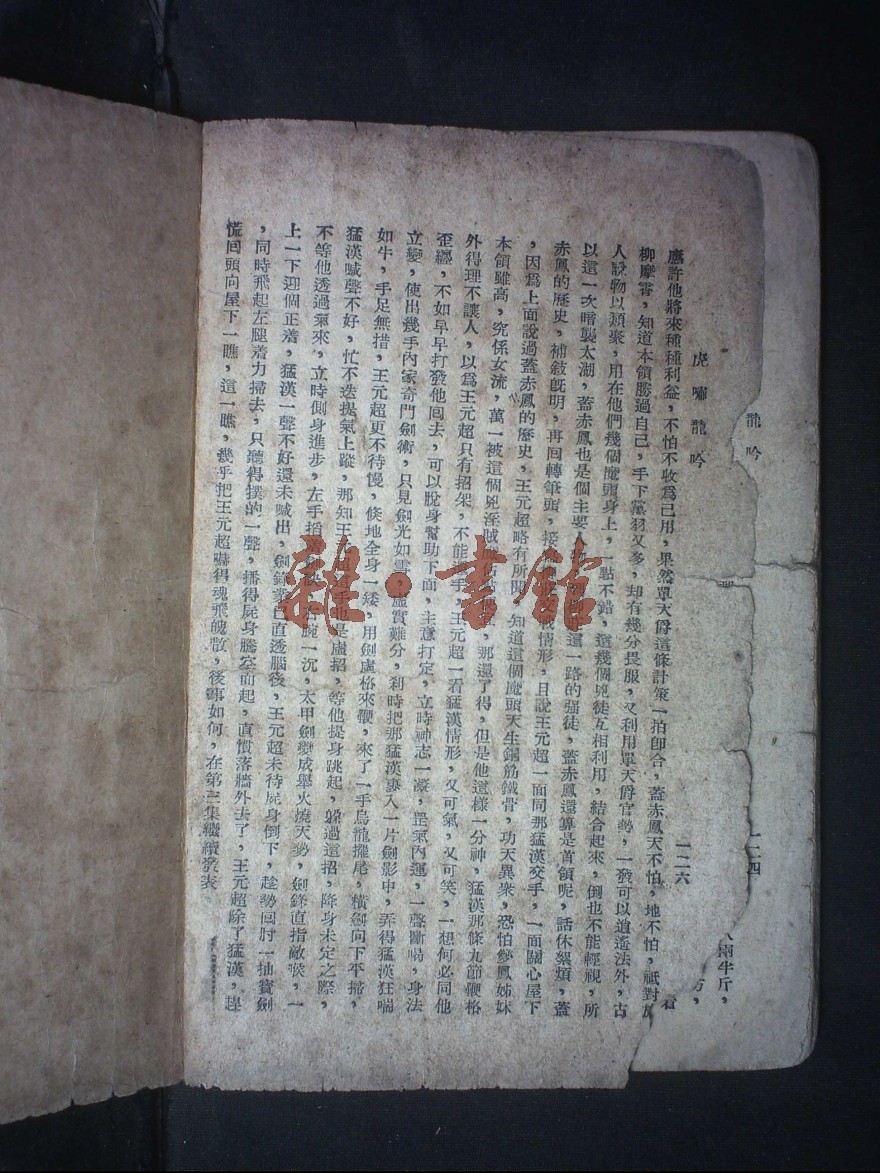 虎嘯龍吟
一二六
應許他將來種種利益，不怕不收爲己用，果然單天爵這條計策一拍卽合，蓋赤鳳天不怕，地不怕，祇對
柳摩霄，知道本領勝過自己，手下黨羽又多，却有幾分畏服，又利用單天爵官勢，一發可以逍遙法外，古
人說物以類聚，用在他們幾個魔頭身上，一點不錯，這幾個兇徒互相利用，結合起來，倒也不能輕視，所
以這一次暗襲太湖，蓋赤鳳也是個主要人 這一路的強徒，蓋赤鳳還算是首領呢，話休絮煩，蓋
赤鳳的歷史，補敍旣明，再回轉筆頭，接 情形，且說王元超一面同那猛漢交手，一面關心屋下
，因爲上面說過蓋赤鳳的歷史，王元超略有所聞 知道這個魔頭天生銅筋鐵骨，功夫異衆，恐怕雙鳳姊妹
本領雖高，究係女流，萬一被這個兇淫賊 那還了得，但是他這樣一分神，猛漢那條九節鞭格
外得理不讓人，以爲王元超只有招架，不能 手，王元超一看猛漢情形，又可氣，又可笑，一想何必同他
歪纏，不如早早打發他回去，可以脫身幫助下面，主意打定，立時神志一凝，罡氣內運，一聲斷喝，身法
立變，使出幾手內家奇門劍術，只見劍光如雪，虛實難分，刹時把那猛漢裹入一片劍影中，弄得猛漢狂喘
如牛，手足無措，王元超更不待慢，倏地全身一矮，用劍虛格來鞭，來了一手烏龍擺尾，橫劍向下平掃，
猛漢喊聲不好，忙不迭提氣上蹤，那知王 是虛招，等他提身跳起，躱過這招，降身未定之際，
不等他透過氣來，立時側身進步，左手 腕一沉，太甲劍變成舉火燒天勢，劍鋒直指敵喉，一
上一下迎個正着，猛漢一聲不好還未喊出，劍鋒業已直透腦後，王元超未待屍身倒下，趁勢回肘一抽寶劍
，同時飛起左腿着力掃去，只聽得撲的一聲，播得屍身騰空而起，直慣落牆外去了，王元超除了猛漢，趕
慌回頭向屋下一瞧，這一瞧，幾乎把王元超嚇得魂飛魄散，後事如何，在第三集繼續發表
龍吟
一二四
兩半斤，
雜·書館